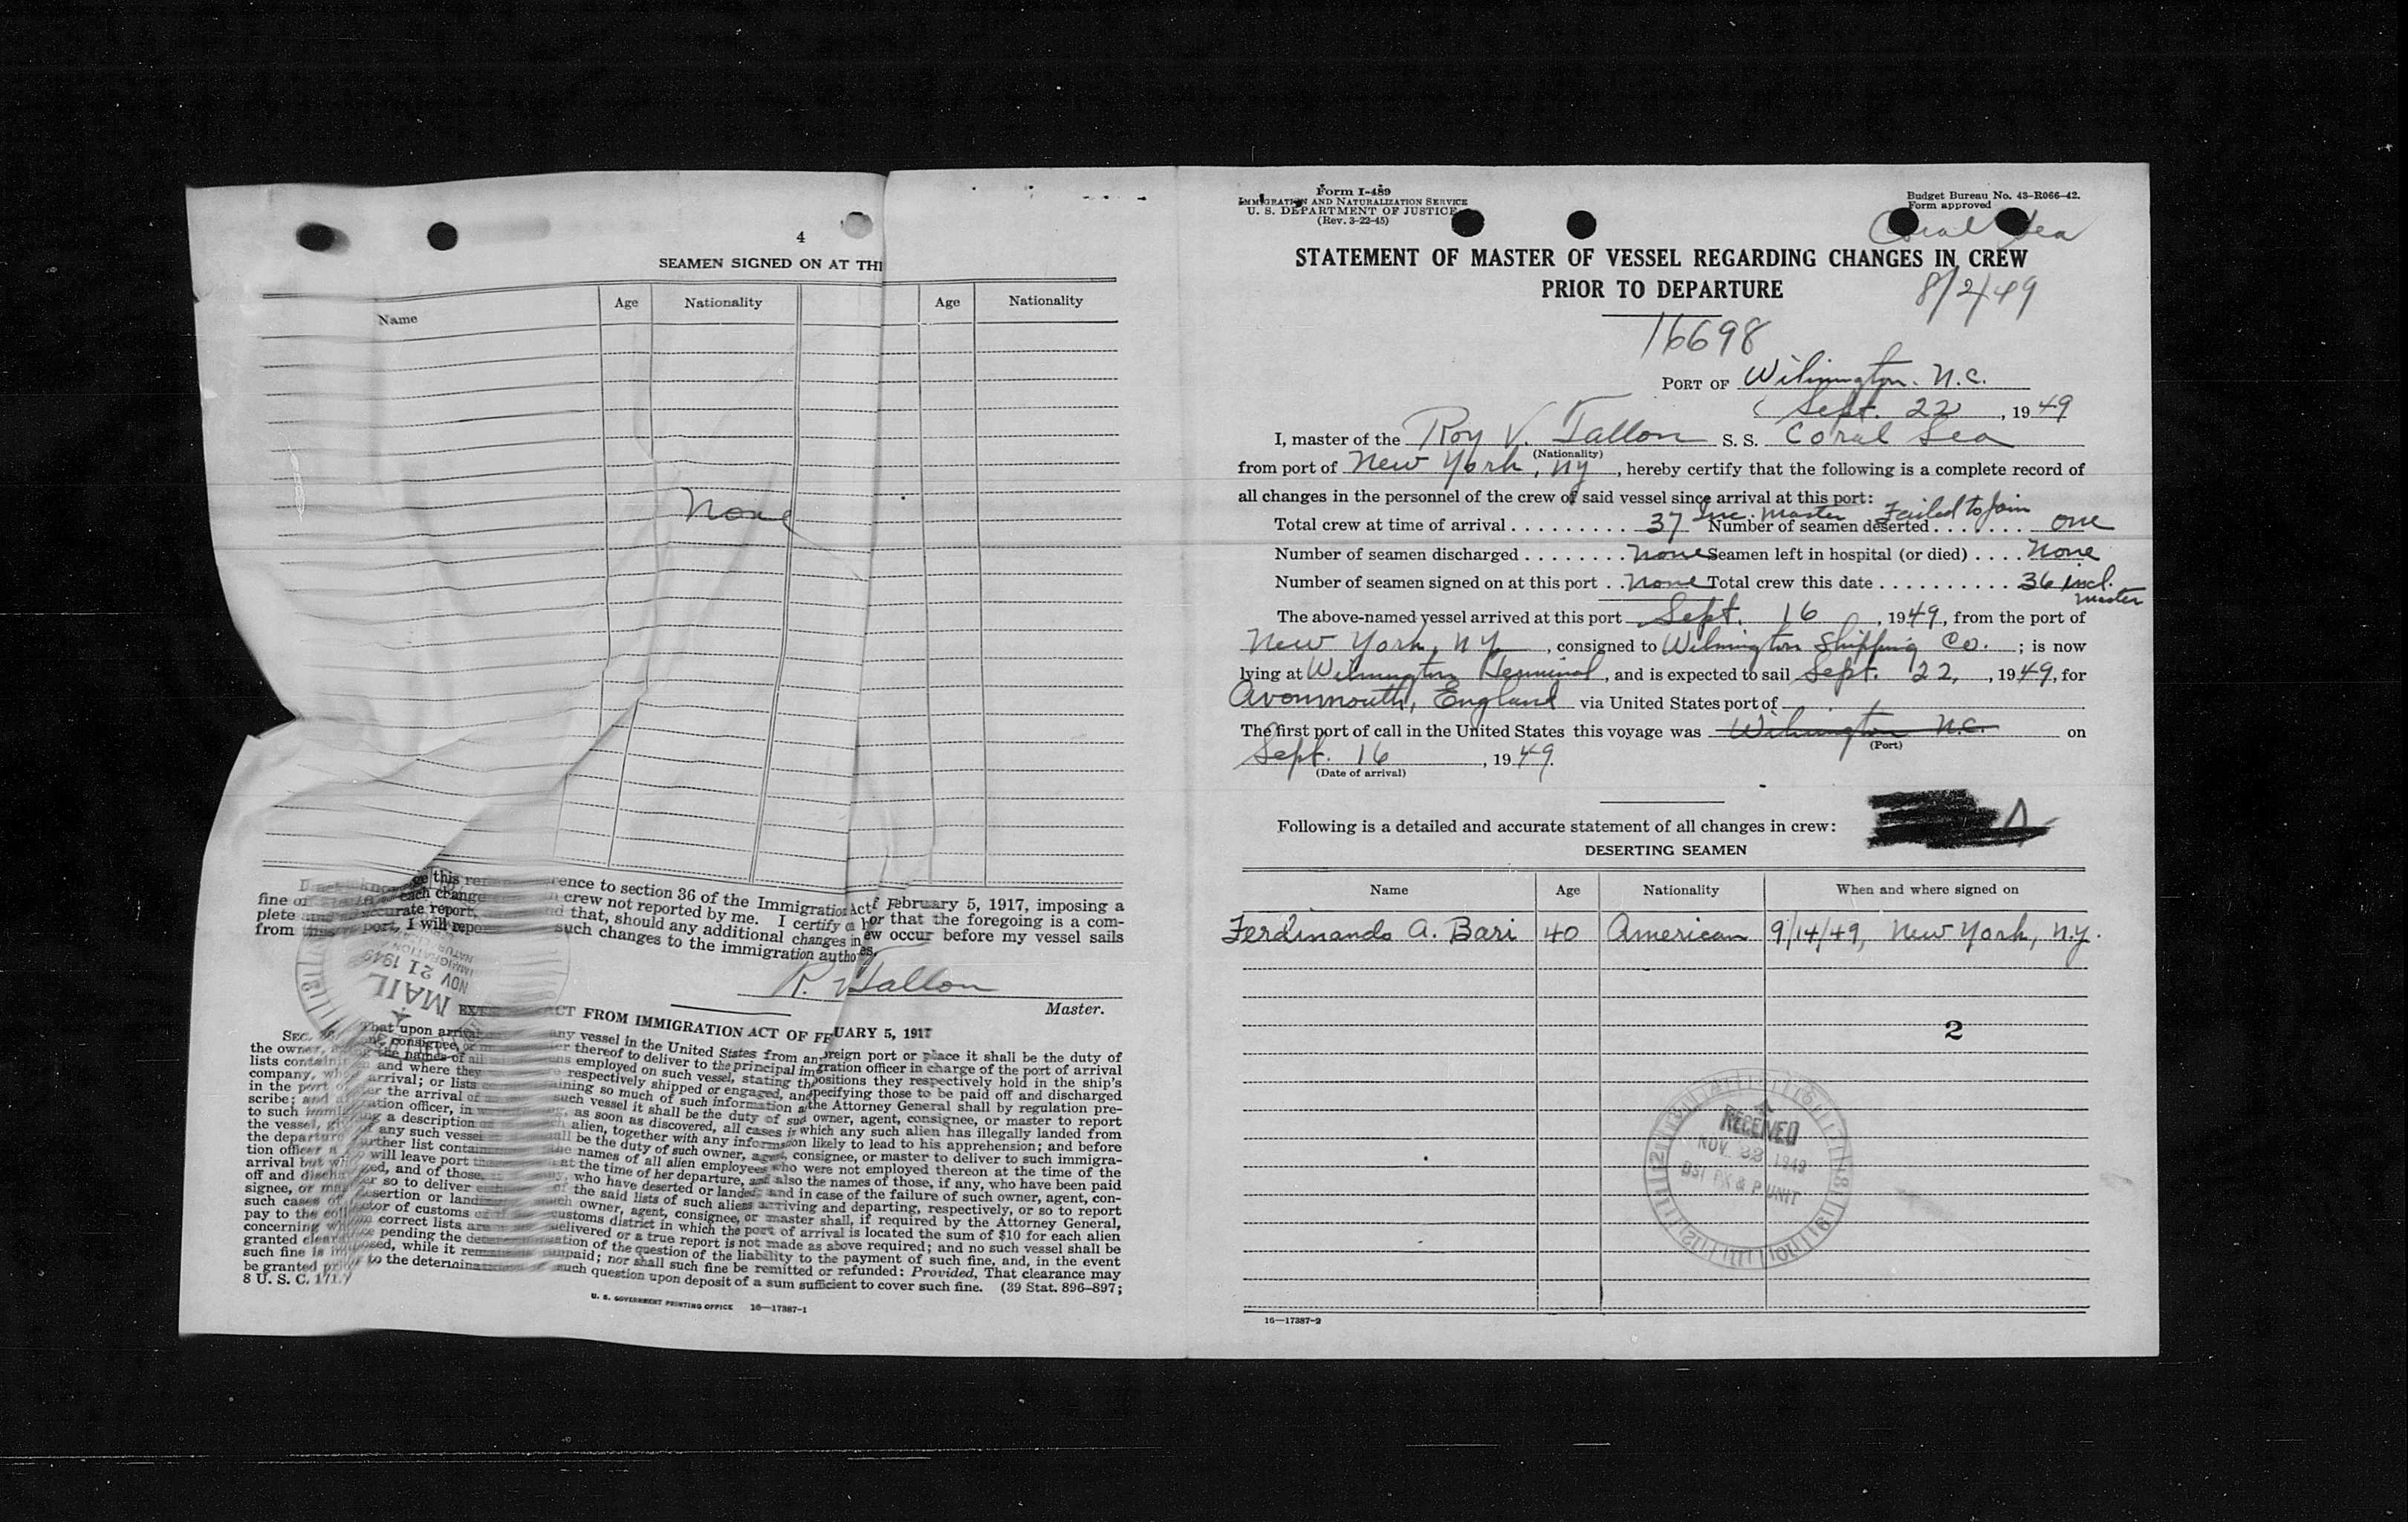 4
SEAMEN SIGNED ON AT THI
Name Age Nationality Age Nationality
None
ge this rence to section 36 of the Immigration Act f February 5, 1917, imposing a
fine of each change crew not reported by me. I certify or that the foregoing is a com-
plete accurate report, d that, should any additional changes in ew occur before my vessel sails
from port, I will repo such changes to the immigration autho es.
R. V. Tallon
Master.
MAIL
NOV 21 1949
ACT FROM IMMIGRATION ACT OF FE UARY 5, 1917
SEC. That upon arrival any vessel in the United States from an reign port or place it shall be the duty of
the owner, consignee, or er thereof to deliver to the principal im gration officer in charge of the port of arrival
lists containin the names of all ns employed on such vessel, stating th positions they respectively hold in the ship's
company, wh and where they respectively shipped or engaged, and specifying those to be paid off and discharged
in the port of arrival; or lists aining so much of such information a the Attorney General shall by regulation pre-
scribe; and after the arrival of such vessel it shall be the duty of such owner, agent, consignee, or master to report
to such immigration officer, in as soon as discovered, all cases in which any such alien has illegally landed from
the vessel, giving a description of ch alien, together with any information likely to lead to his apprehension; and before
the departure of any such vessel all be the duty of such owner, agent, consignee, or master to deliver to such immigra-
tion officer a further list contain the names of all alien employees who were not employed thereon at the time of the
arrival but who will leave port at the time of her departure, and also the names of those, if any, who have been paid
off and discharged, and of those, who have deserted or landed; and in case of the failure of such owner, agent, con-
signee, or master so to deliver of the said lists of such aliens arriving and departing, respectively, or so to report
such cases of desertion or landing such owner, agent, consignee, or master shall, if required by the Attorney General,
pay to the collector of customs of customs district in which the port of arrival is located the sum of $10 for each alien
concerning whom correct lists are delivered or a true report is not made as above required; and no such vessel shall be
granted clearance pending the determination of the question of the liability to the payment of such fine, and, in the event
such fine is imposed, while it remains unpaid; nor shall such fine be remitted or refunded: Provided, That clearance may
be granted prior to the determination of such question upon deposit of a sum sufficient to cover such fine. (39 Stat. 896-897;
8 U. S. C. 171.)
U. S. GOVERNMENT PRINTING OFFICE 16—17387-1
Form I-489
IMMIGRATION AND NATURALIZATION SERVICE
U. S. DEPARTMENT OF JUSTICE
(Rev. 3-22-45)
Budget Bureau No. 43-R066-42.
Form approved
Coral Sea
STATEMENT OF MASTER OF VESSEL REGARDING CHANGES IN CREW
PRIOR TO DEPARTURE
8/2/49
16698
PORT OF Wilmington. N.C.
Sept. 22, 1949
I, master of the Roy V. Tallon S. S. Coral Sea
(Nationality)
from port of New York, NY, hereby certify that the following is a complete record of
all changes in the personnel of the crew of said vessel since arrival at this port:
Inc. Master Failed to Join
Total crew at time of arrival .......... 37 Number of seamen deserted....... one
Number of seamen discharged ........ none Seamen left in hospital (or died) .... None
Number of seamen signed on at this port .. None Total crew this date .......... 36 incl.
master
The above-named vessel arrived at this port Sept. 16, 1949, from the port of
New York, NY, consigned to Wilmington Shipping Co.; is now
lying at Wilmington Terminal, and is expected to sail Sept. 22, 1949, for
Avonmouth, England via United States port of
The first port of call in the United States this voyage was Wilmington N.C. on
(Port)
Sept. 16, 1949.
(Date of arrival)
Following is a detailed and accurate statement of all changes in crew:
DESERTING SEAMEN
Name Age Nationality When and where signed on
Ferdinando A. Bari 40 American 9/14/49, New York, N.Y.
2
RECEIVED
NOV. 22 1949
PX & P UNIT
16—17387-2